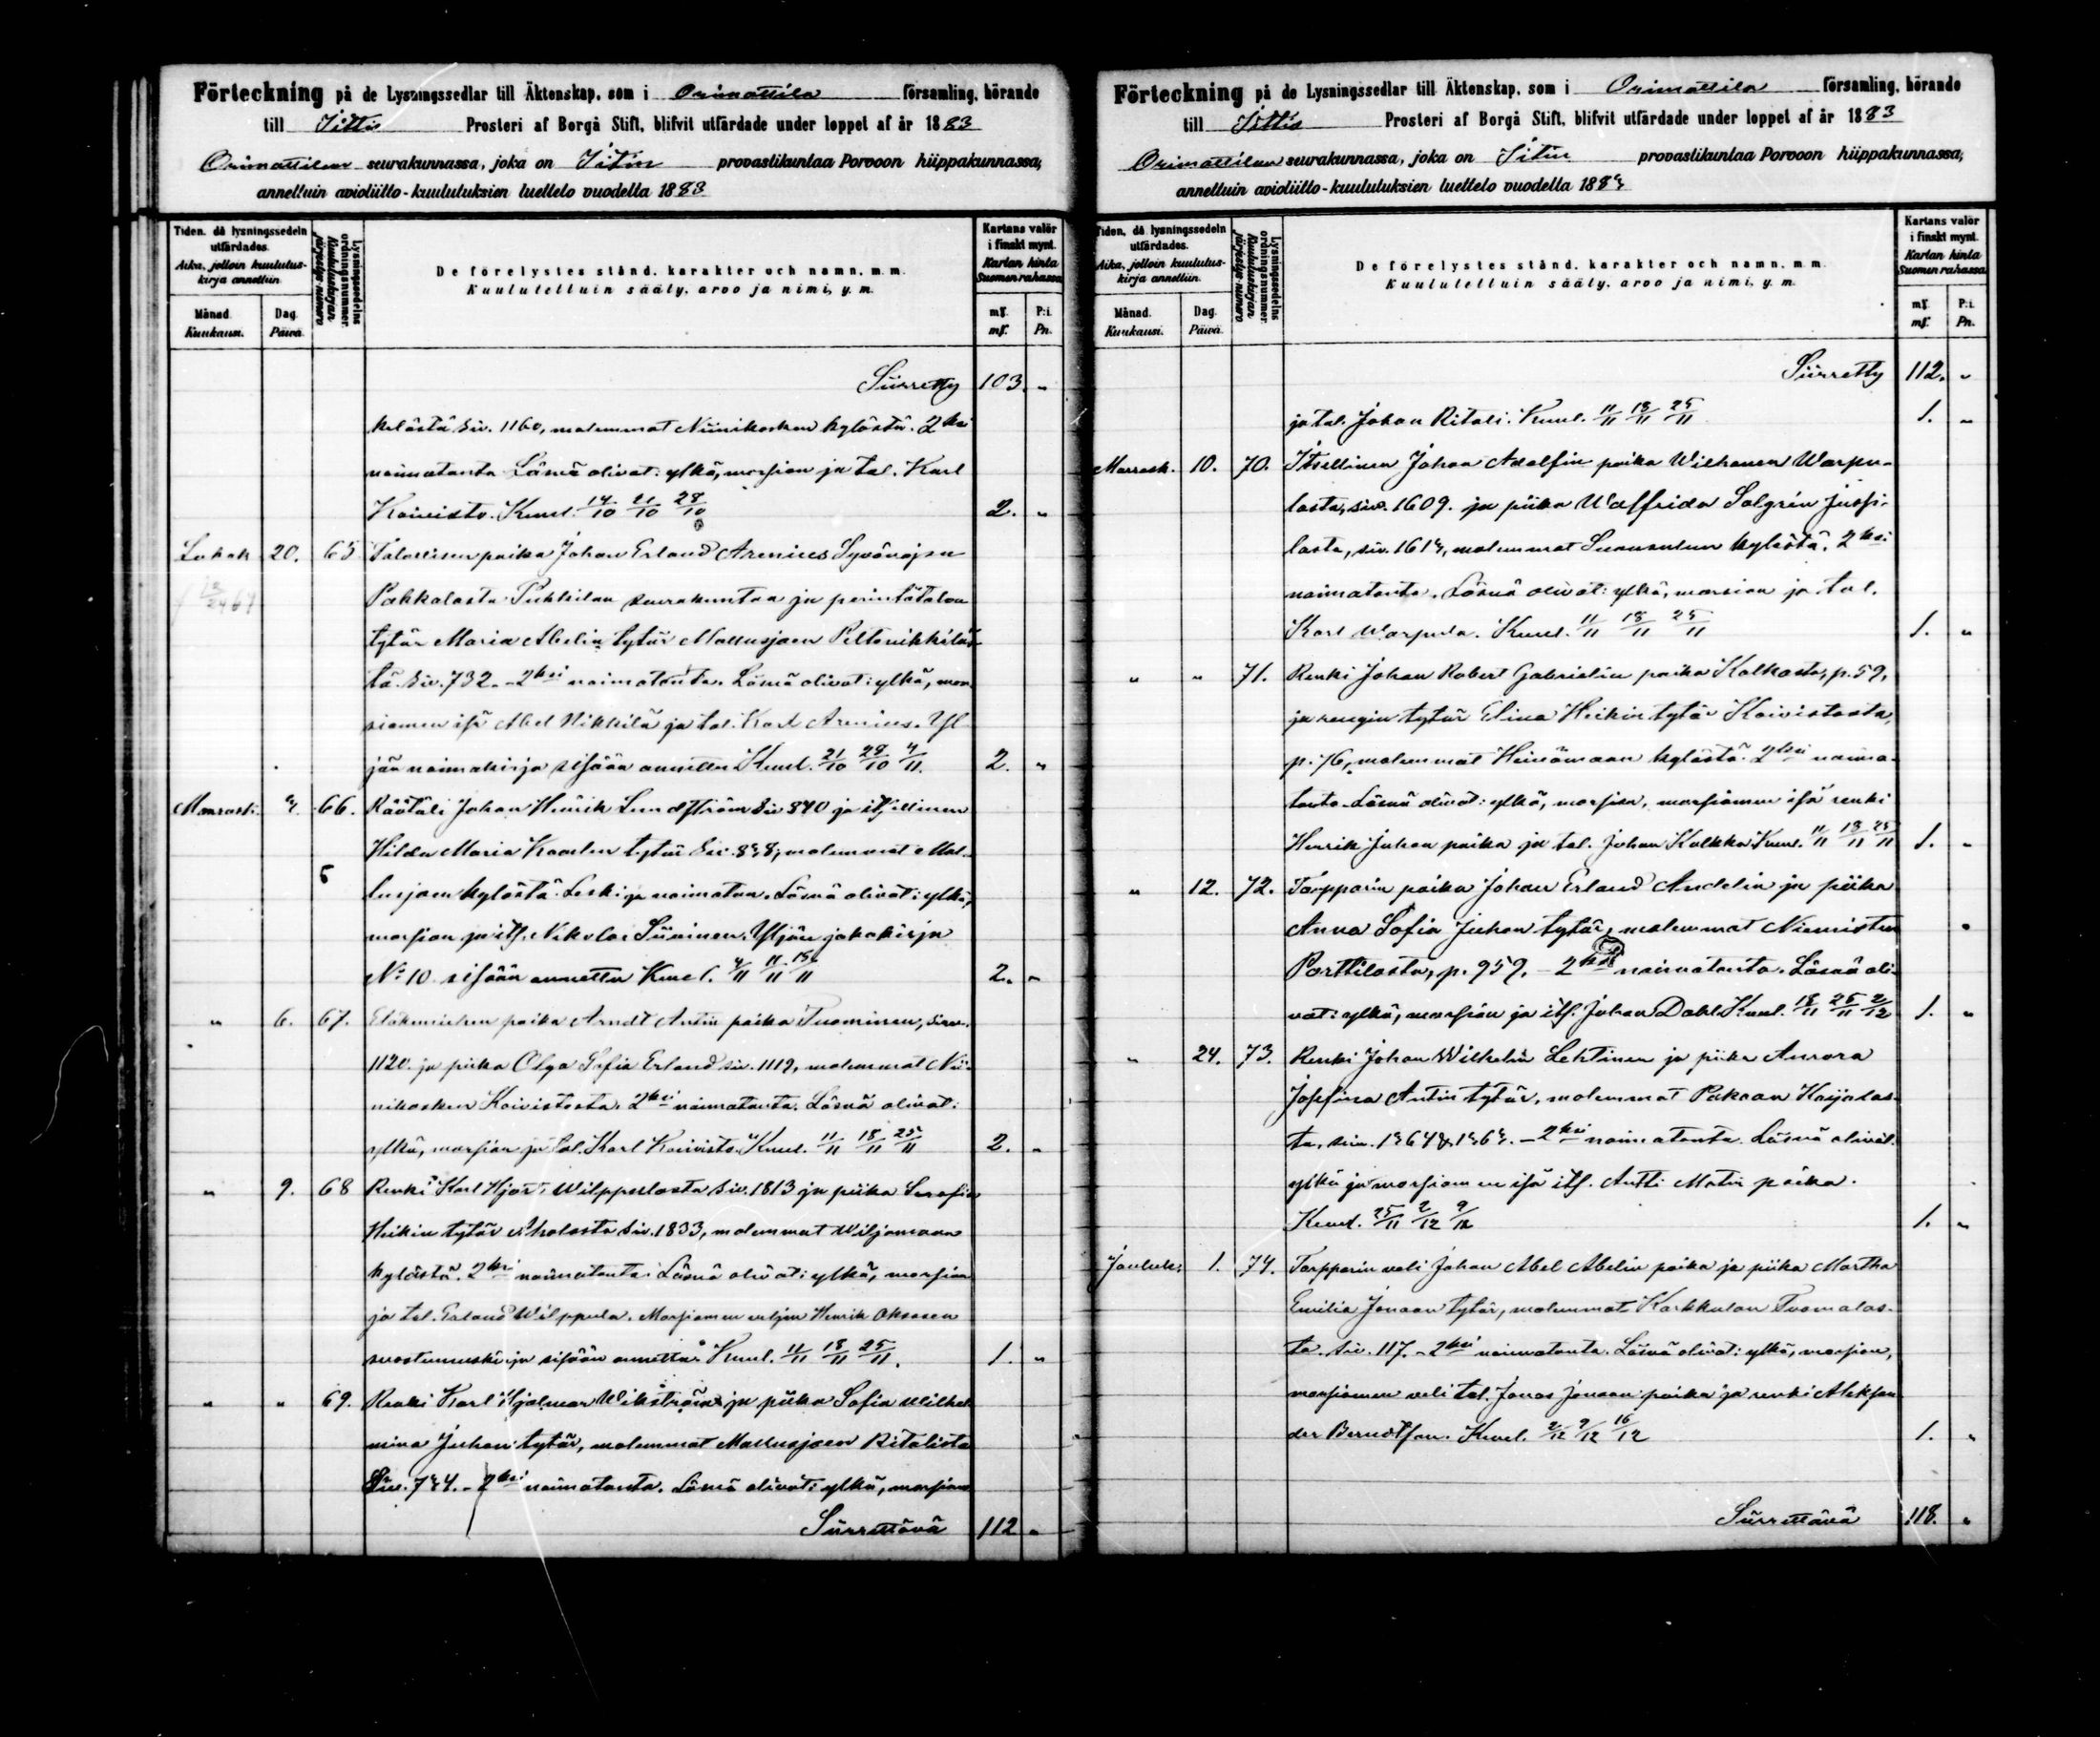 Förteckning på de Lysningssedlar till Äktenskap, som i Orimattila församling, hörande
till Iittis Prosteri af Borgå Stift, blifvit utfärdade under loppet af år 1883
Orimattilan seurakunnassa, joka on Iitin provastikuntaa Porvoon hiippakunnassa,
annettuin avioliitto-kuulutuksien luettelo vuodelta 1883
Tiden, då lysningssedeln utfärdades.
Aika, jolloin kuulutuskirja annettiin
Månad. Kuukausi.
Dag. Päivä.
Lysningssedelns ordningsnummer.
Kuulutuskirjan järjestys-numero
De förelystes stånd, karakter och namn, m. m.
Kuulutelluin sääty, arvo ja nimi, y. m.
Kartans valör i finskt mynt.
Kartan hinta Suomen rahassa
mf. P:i.
mf. Pn.
Siirretty 103. „
kylästä siv. 1160, molemmat Niinikosken kylästä. 2ksi
naimatonta Läsnä olivat: ylkä, morsian ja tal. Karl
Koivisto. Kuul. 14/10 21/10 28/10 2. „
Lokak 20. 65 Talollisen poika Johan Erland Arenius Syvänojan
Pakkalasta Pukkilan seurakuntaa ja perintötalon
tytär Maria Abelin tytär Mallusjoen Peltonikkiläs-
tä siv. 732. - 2ksi naimatonta. Läsnä olivat: ylkä, mor-
siamen isä Abel Nikkilä ja tal. Karl Arenius. Yl-
jän naimakirja sisään annettu. Kuul. 21/10 28/10 4/11. 2. „
Marrask. 3. 66. Räätäli Johan Henrik Lundström siv 840 ja itsellinen
Hilda Maria Kaarlen tytär siv. 838, molemmat Mal-
lusjoen kylästä. Leski ja naimaton. Läsnä olivat: ylkä,
morsian ja its. Nikolai Siivinen. Yljän jakokirja
No 10 sisään annettu Kuul. 4/11 11/11 18/11 2. „
„ 6. 67. poika Arndt Antin poika Tuominen, siv.
1120. ja piika Olga Sofia Erland siv. 1119, molemmat Nii-
nikosken Koivistosta. 2ksi naimatonta. Läsnä olivat:
ylkä, morsian ja tal. Karl Koivisto. Kuul. 11/11 18/11 25/11 2. „
„ 9. 68 Renki Karl Hjort Wilppulasta siv. 1813 ja piika Serafia
Heikin tytär Aholasta siv. 1833, molemmat Wiljamaan
kylästä. 2ksi naimatonta. Läsnä olivat: ylkä, morsian
ja tal. Erland Wilppula. Morsiamen veljen Henrik Oksasen
suostumuskirja sisään annettu. Kuul. 11/11 18/11 25/11. 1. „
„ „ 69. Renki Karl Hjalmar Wikström ja piika Sofia Wilhel-
mina Juhan tytär, molemmat Mallusjoen Ritalista
Siv. 734. - 2ksi naimatonta. Läsnä olivat: ylkä, morsian
Siirrettävä 112 „
Förteckning på de Lysningssedlar till Äktenskap, som i Orimattila församling, hörande
till Iittis Prosteri af Borgå Stift, blifvit utfärdade under loppet af år 1883
Orimattilan seurakunnassa, joka on Iitin provastikuntaa Porvoon hiippakunnassa,
annettuin avioliitto-kuulutuksien luettelo vuodelta 1883
Tiden, då lysningssedeln utfärdades.
Aika, jolloin kuulutuskirja annettiin.
Månad. Kuukausi.
Dag. Päivä.
Lysningssedelns ordningsnummer.
Kuulutuskirjan järjestys-numero
De förelystes stånd, karakter och namn, m. m.
Kuulutelluin sääty, arvo ja nimi, y. m.
Kartans valör i finskt mynt.
Kartan hinta Suomen rahassa
mf. P:i.
mf. Pn.
Siirretty 112. „
ja tal. Johan Ritali. Kuul. 11/11 18/11 25/11 1. „
Marrask. 10. 70. Itsellinen Johan Adolfin poika Wikman Warpu-
lasta, siv. 1609. ja piika Walfrida Salgrén Jussi-
lasta, siv. 1613, molemmat kylästä. 2ksi
naimatonta. Läsnä olivat: ylkä, morsian ja tal.
Karl Warpula. Kuul. 11/11 18/11 25/11 1. „
„ „ 71. Renki Johan Robert Gabrielin poika Kalkosta, p. 59,
ja rengin tytär Elina Heikin tytär Koivistosta,
p. 76, molemmat Heinämaan kylästä. 2ksi naima-
tonta. Läsnä olivat: ylkä, morsian, morsiamen isä renki
Henrik Juhan poika ja tal. Johan Kalkka. Kuul. 11/11 18/11 25/11 1. „
„ 12. 72. Torpparin poika Johan Erland Andelin ja piika
Anna Sofia Juhan tytär, molemmat Niemisten
Porttilasta, p. 959. - 2ksi naimatonta. Läsnä oli-
vat: ylkä, morsian ja its. Johan Dahl. Kuul. 18/11 25/11 2/12 1. „
„ 24. 73. Renki Johan Wilhelm Lehtinen ja piika Aurora
Josefina Antin tytär, molemmat Pakaan Kaijalas-
ta, siv. 1364 & 1363. - 2ksi naimatonta. Läsnä olivat:
ylkä ja morsiamen isä its. Antti Matin poika.
Kuul. 25/11 2/12 9/12 1. „
Jouluk. 1. 74. Torpparin veli Johan Abel Abelin poika ja piika Martha
Emilia Jonaan tytär, molemmat Karkkulan Tuomalas-
ta. Siv. 117. - 2ksi naimatonta. Läsnä olivat: ylkä, morsian,
morsiamen veli tal. Jonas Jonaan poika ja renki Aleksan-
der Berndtson. Kuul. 2/12 9/12 16/12 1. „
Siirrettävä 118. „